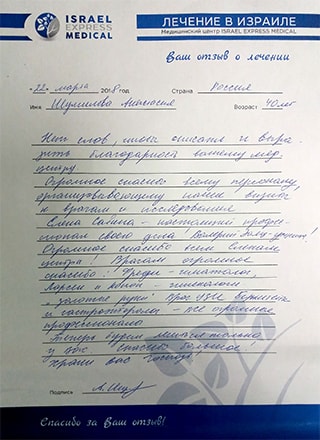 ISRAEL
EXPRESS
MEDICAL
ЛЕЧЕНИЕ В ИЗРАИЛЕ
Медицинский центр ISRAEL EXPRESS MEDICAL
Ваш отзыв о лечении
"22" марта 2018 год Страна Россия
Имя Шумилова Анастасия Возраст 40 лет
Нет слов, чтобы описать и выра-
зить благодарность вашему мед.
центру.
Огромное спасибо всему персоналу,
организовывающему наши визиты
к врачам и исследования
Елена - настоящий профес-
сионал своего дела!
Огромное спасибо всем
центра! Врачам огромное
спасибо!
и - гинекологи
золотые руки! Проф.
и гастроэнтеролог - все огромные
профессионалы
Теперь будем
и Вас Спасибо большое!
Храни Вас Господь!
Подпись
Спасибо за Ваш отзыв!